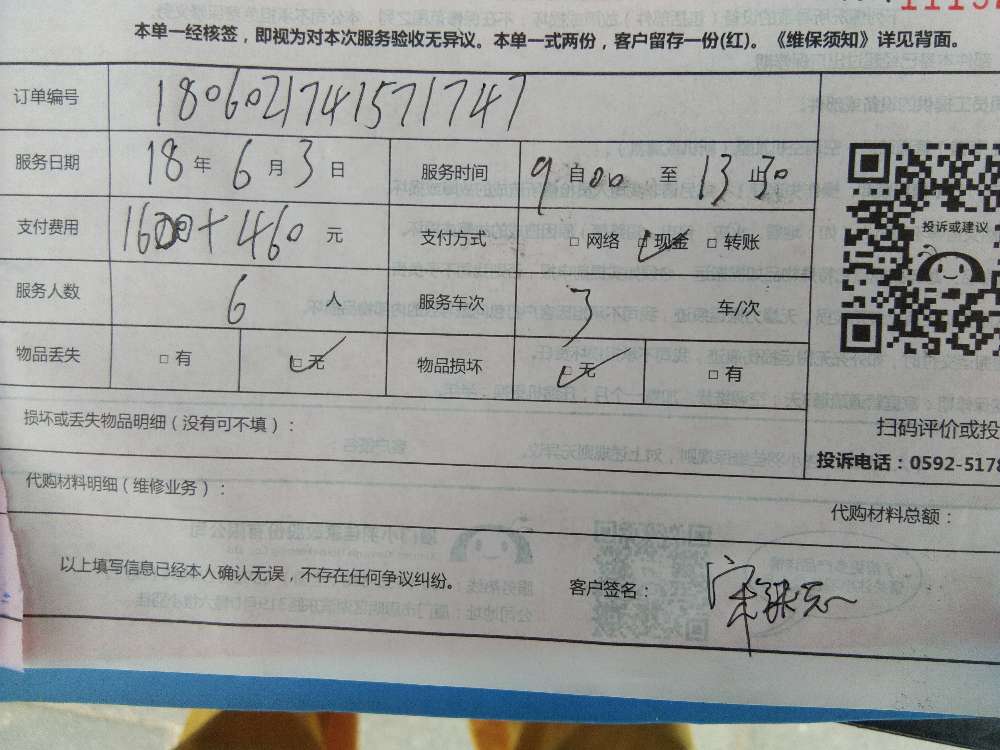 本单一经核签，即视为对本次服务验收无异议。本单一式两份，客户留存一份(红)。《维保须知》详见背面。
订单编号 1806021741571747
服务日期 18 年 6 月 3 日 服务时间 9 自 00 至 13 止 30
支付费用 1600+460 元 支付方式 □ 网络 ☑ 现金 □ 转账
服务人数 6 人 服务车次 3 车/次
物品丢失 □ 有 ☑ 无 物品损坏 ☑ 无 □ 有
投诉或建议
损坏或丢失物品明细（没有可不填）：
扫码评价或投
投诉电话：0592-5178
代购材料明细（维修业务）：
代购材料总额：
以上填写信息已经本人确认无误，不存在任何争议纠纷。
客户签名：